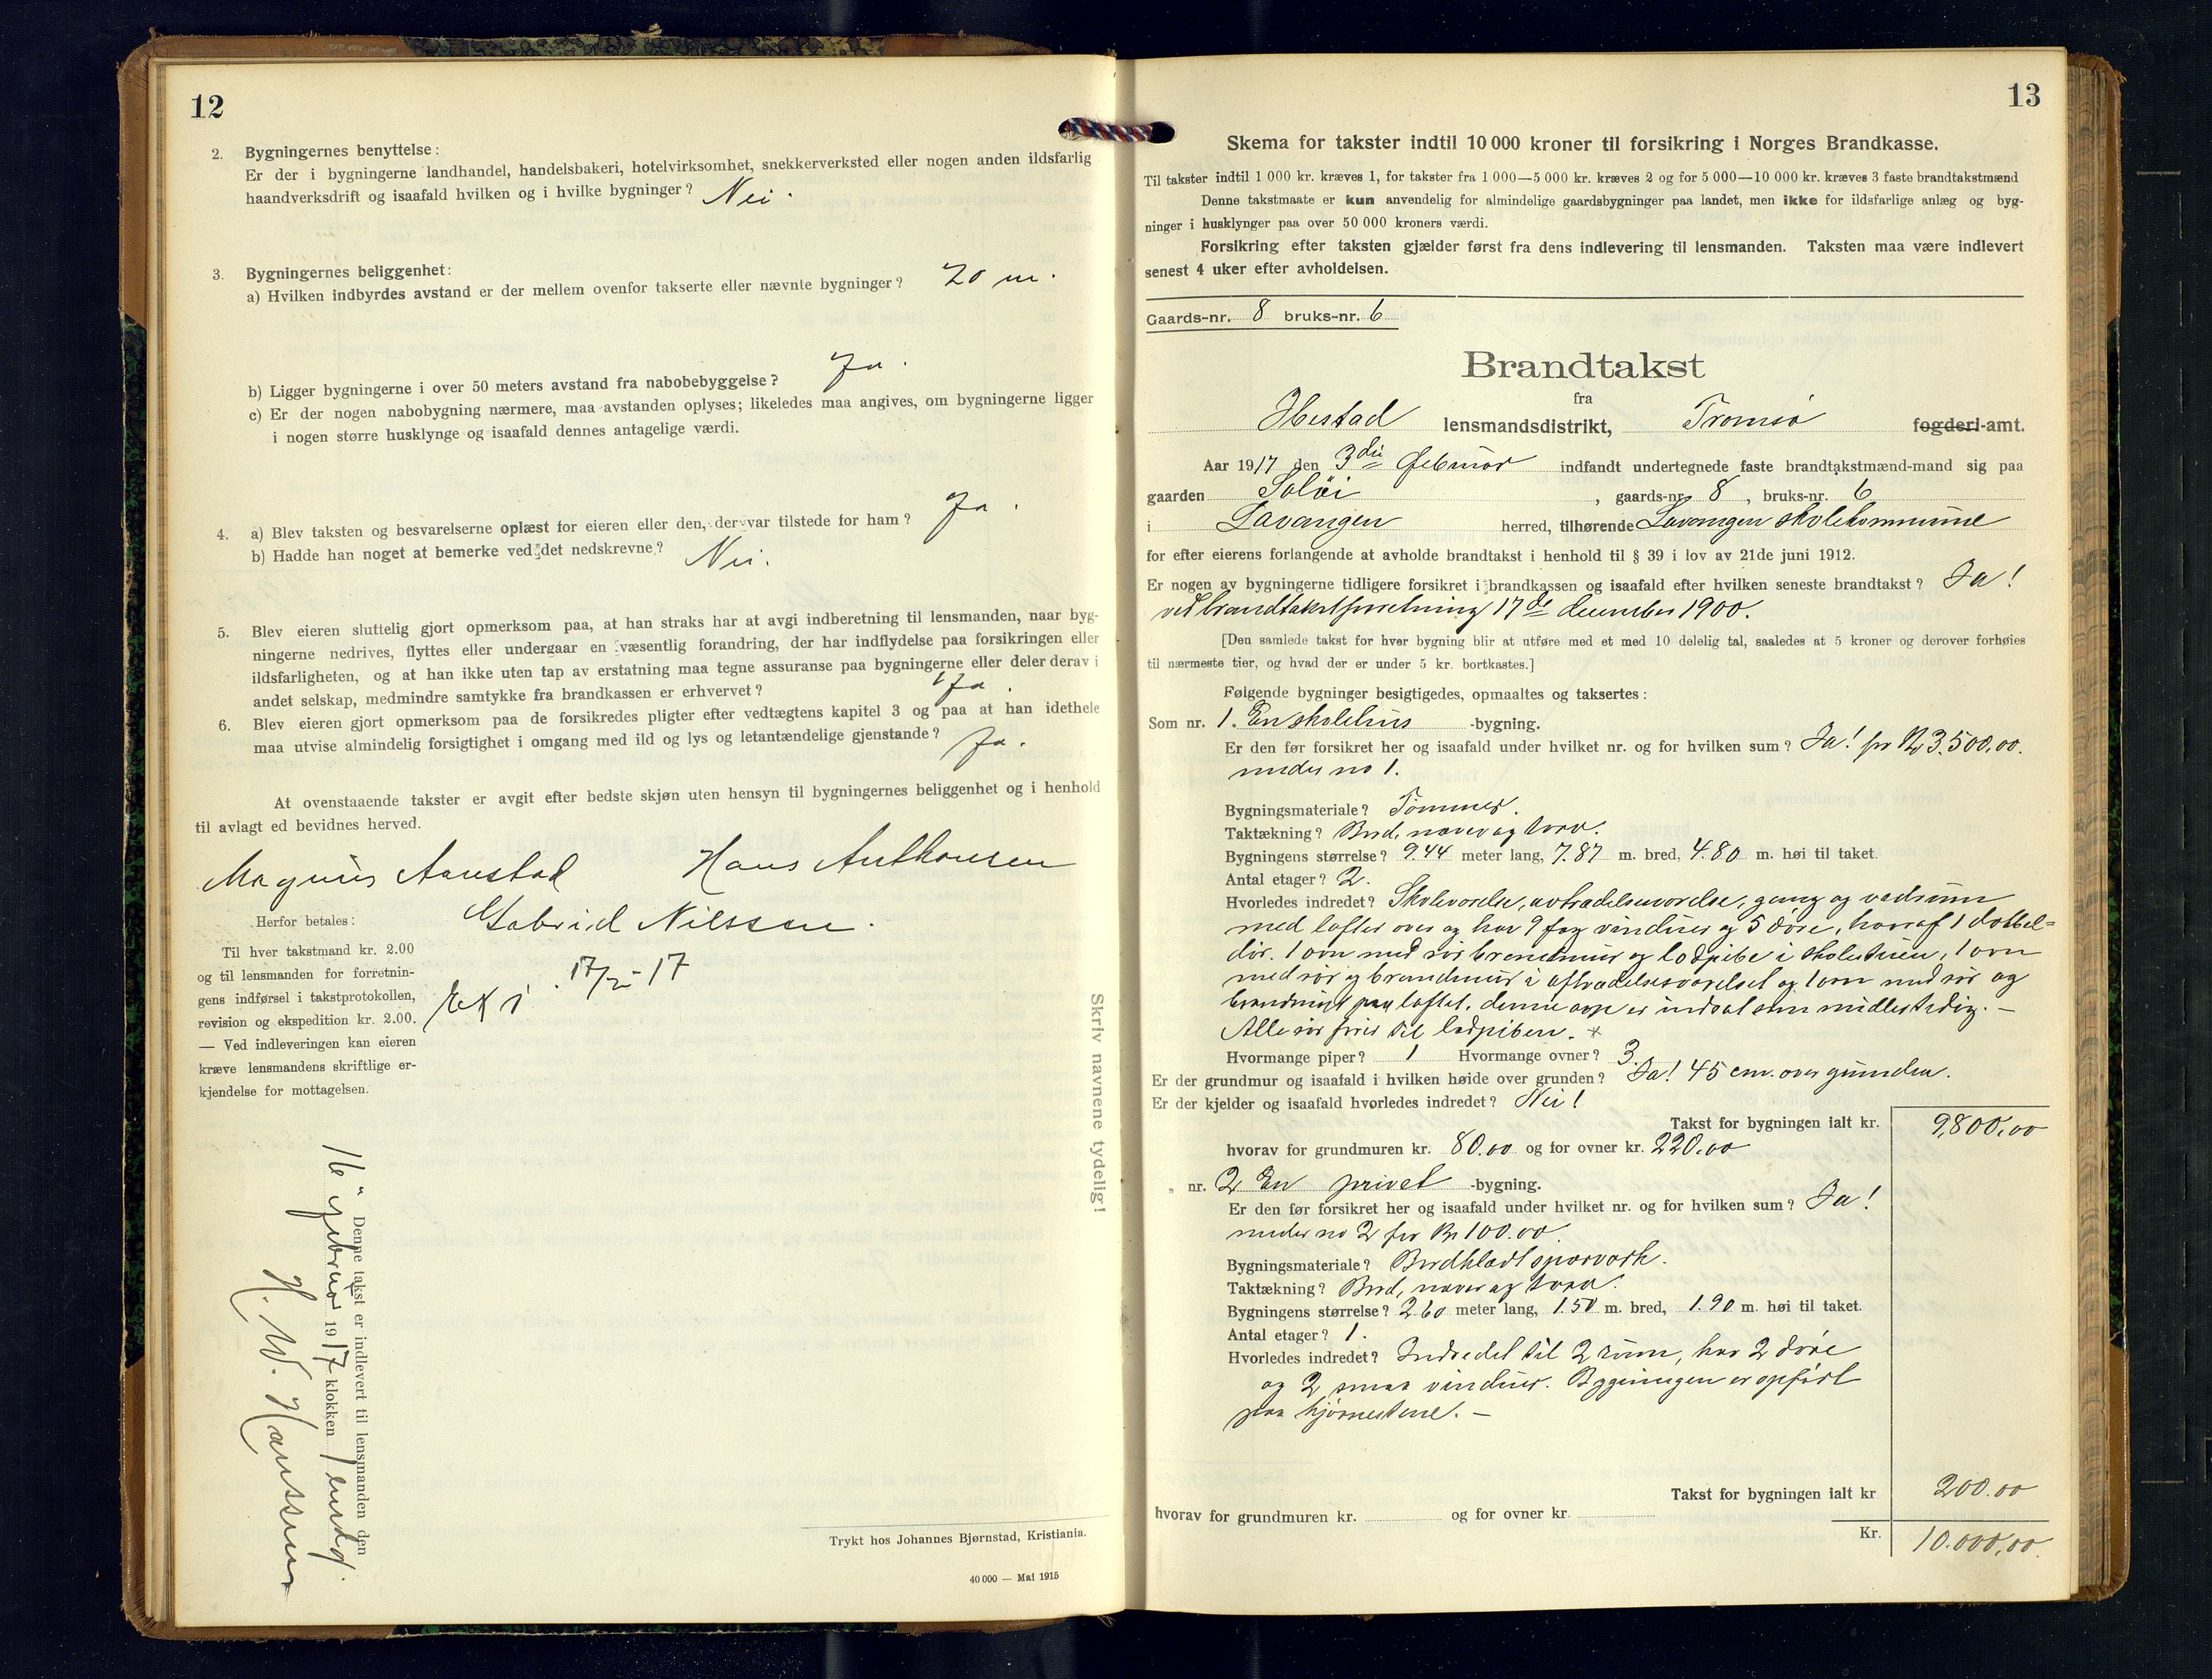 12
2. Bygningernes benyttelse:
Er der i bygningerne landhandel, handelsbakeri, hotelvirksomhet, snekkerverksted eller nogen anden ildsfarlig
haandverksdrift og isaafald hvilken og i hvilke bygninger? Nei.
3. Bygningernes beliggenhet:
a) Hvilken indbyrdes avstand er der mellem ovenfor takserte eller nævnte bygninger? 20 m.
b) Ligger bygningerne i over 50 meters avstand fra nabobebyggelse? Ja.
c) Er der nogen nabobygning nærmere, maa avstanden oplyses; likeledes maa angives, om bygningerne ligger
i nogen større husklynge og isaafald dennes antagelige værdi.
4. a) Blev taksten og besvarelserne oplæst for eieren eller den, der var tilstede for ham? Ja.
b) Hadde han noget at bemerke ved det nedskrevne? Nei.
5. Blev eieren sluttelig gjort opmerksom paa, at han straks har at avgi indberetning til lensmanden, naar byg-
ningerne nedrives, flyttes eller undergaar en væsentlig forandring, der har indflydelse paa forsikringen eller
ildsfarligheten, og at han ikke uten tap av erstatning maa tegne assuranse paa bygningerne eller deler derav i
andet selskap, medmindre samtykke fra brandkassen er erhvervet? Ja.
6. Blev eieren gjort opmerksom paa de forsikredes pligter efter vedtægtens kapitel 3 og paa at han idethele
maa utvise almindelig forsigtighet i omgang med ild og lys og letantændelige gjenstande? Ja.
At ovenstaaende takster er avgit efter bedste skjøn uten hensyn til bygningernes beliggenhet og i henhold
til avlagt ed bevidnes herved.
Magnus Aanstad Hans Anthonsen
Gabriel Nilssen.
Herfor betales:
Til hver takstmand kr. 2.00
og til lensmanden for forretnin-
gens indførsel i takstprotokollen,
revision og ekspedition kr. 2.00.
— Ved indleveringen kan eieren
kræve lensmandens skriftlige er-
kjendelse for mottagelsen.
17/2-17
Skriv navnene tydelig!
Denne takst er indlevert til lensmanden den
16" februar 1917 klokken 1 emd.
H. W. Hanssen
Trykt hos Johannes Bjørnstad, Kristiania.
40 000 — Mai 1915
13
Skema for takster indtil 10 000 kroner til forsikring i Norges Brandkasse.
Til takster indtil 1 000 kr. kræves 1, for takster fra 1 000—5 000 kr. kræves 2 og for 5 000—10 000 kr. kræves 3 faste brandtakstmænd
Denne takstmaate er kun anvendelig for almindelige gaardsbygninger paa landet, men ikke for ildsfarlige anlæg og byg-
ninger i husklynger paa over 50 000 kroners værdi.
Forsikring efter taksten gjælder først fra dens indlevering til lensmanden. Taksten maa være indlevert
senest 4 uker efter avholdelsen.
Gaards-nr. 8 bruks-nr. 6
Brandtakst
fra
Ibestad lensmandsdistrikt, Tromsø fogderi-amt.
Aar 1917 den 3die Februar indfandt undertegnede faste brandtakstmænd-mand sig paa
gaarden Soløi, gaards-nr. 8, bruks-nr. 6
i Lavangen herred, tilhørende Lavangen skolekommune
for efter eierens forlangende at avholde brandtakst i henhold til § 39 i lov av 21de juni 1912.
Er nogen av bygningerne tidligere forsikret i brandkassen og isaafald efter hvilken seneste brandtakst? Ja!
ved brandtakstforretning 17de december 1900.
[Den samlede takst for hver bygning blir at utføre med et med 10 delelig tal, saaledes at 5 kroner og derover forhøies
til nærmeste tier, og hvad der er under 5 kr. bortkastes.]
Følgende bygninger besigtigedes, opmaaltes og taksertes:
Som nr. 1. En skolehus -bygning.
Er den før forsikret her og isaafald under hvilket nr. og for hvilken sum? Ja! for Kr 3.500,00.
under no 1.
Bygningsmateriale? Tømmer.
Taktækning? Bord, never og torv.
Bygningens størrelse? 9.44 meter lang, 7.87 m. bred, 4.80 m. høi til taket.
Antal etager? 2.
Hvorledes indredet? Skoleværelse, avtrædelsesværelse, gang og vedrum
med lofter over og har 9 fag vinduer og 5 døre, hvoraf 1 dobbel=
dør. 1 ovn med rør brandmur og lodpibe i skolestuen, 1 ovn
med rør og brandmur i aftrædelsesværelset og 1 ovn med rør og
brandmur paa loftet, denne ovn er indsat som midlertidig. —
Alle rør fører til lodpiben. ×
Hvormange piper? 1 Hvormange ovner? 3.
Er der grundmur og isaafald i hvilken høide over grunden? Ja! 45 cm. over grunden.
Er der kjelder og isaafald hvorledes indredet? Nei!
Takst for bygningen ialt kr. 9,800,00
hvorav for grundmuren kr. 80.00 og for ovner kr. 220.00
„ nr. 2 En privet -bygning.
Er den før forsikret her og isaafald under hvilket nr. og for hvilken sum? Ja!
under no 2 for Kr 100.00.
Bygningsmateriale? Bordklædt sparverk.
Taktækning? Bord, never og torv.
Bygningens størrelse? 2.60 meter lang, 1.50 m. bred, 1.90 m. høi til taket.
Antal etager? 1.
Hvorledes indredet? Indredet til 2 rum, har 2 døre
og 2 smaa vinduer. Bygningen er opført
paa hjørnestene. —
Takst for bygningen ialt kr 200.00
hvorav for grundmuren kr. og for ovner kr.
Kr. 10.000,00.